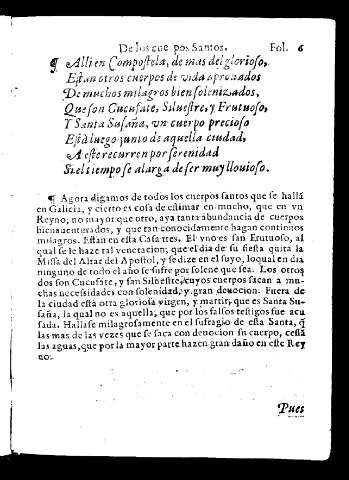 De los cuerpos Santos. Fol. 6
¶ Alli en Compostela, de mas del glorioso,
Estan otros cuerpos de vida aprouados
De muchos milagros bien solenizados,
Que son Cucufate, Siluestre, y Frutuoso,
Y Santa Susaña, vn cuerpo precioso
Està luego junto de aquella ciudad,
A este recurren por serenidad
Si el tiempo se alarga de ser muy llouioso.
¶ Agora digamos de todos los cuerpos santos que se hallã
en Galicia, y cierto es cosa de estimar en mucho, que en vn
Reyno, no mayor que otro, aya tanta abundancia de cuerpos
bienauenturados, y que tan conocidamente hagan continuos
milagros. Estan en esta Casa tres. El vno es san Frutuoso, al
qual se le haze tal veneracion, que el dia de su fiesta quita la
Missa del Altar del Apostol, y se dize en el suyo, lo qual en dia
ninguno de todo el año se sufre por solene que sea. Los otros
dos son Cucufate, y san Silhestre, cuyos cuerpos sacan a mu-
chas necessidades con solenidad, y gran deuocion. Fuera de
la ciudad està otra gloriosa virgen, y martir, que es Santa Su-
saña, la qual no es aquella, que por los falsos testigos fue acu
sada. Hallase milagrosamente en el sufragio de esta Santa, q̃
las mas de las vezes que se saca con deuocion su cuerpo, cessã
las aguas, que por la mayor parte hazen gran daño en este Rey
no.
Pues